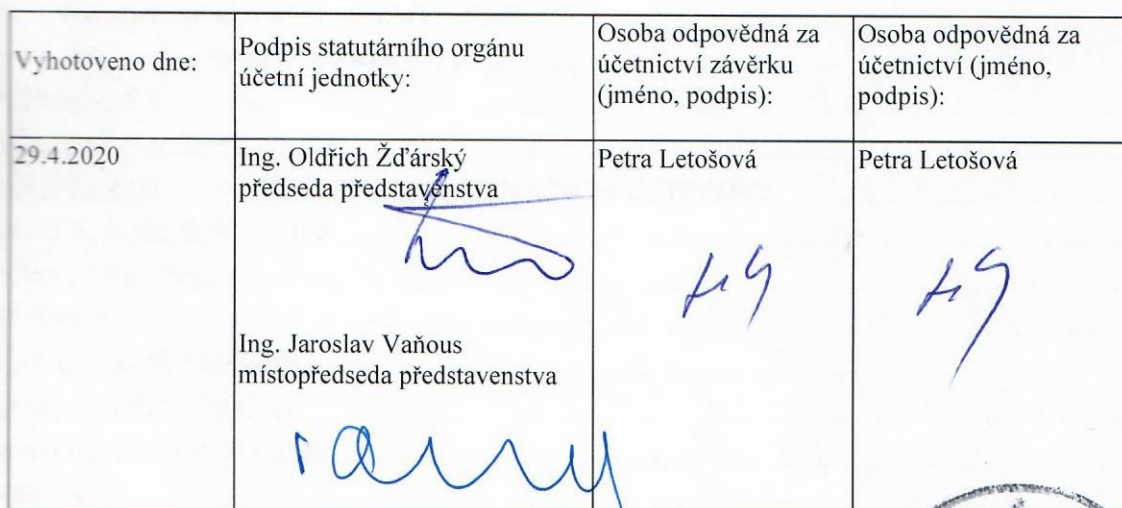 Vyhotoveno dne:
Podpis statutárního orgánu
účetní jednotky:
Osoba odpovědná za
účetnictví závěrku
(jméno, podpis):
Osoba odpovědná za
účetnictví (jméno,
podpis):
29.4.2020
Ing. Oldřich Žďárský
předseda představenstva
Ing. Jaroslav Vaňous
místopředseda představenstva
Petra Letošová
Petra Letošová